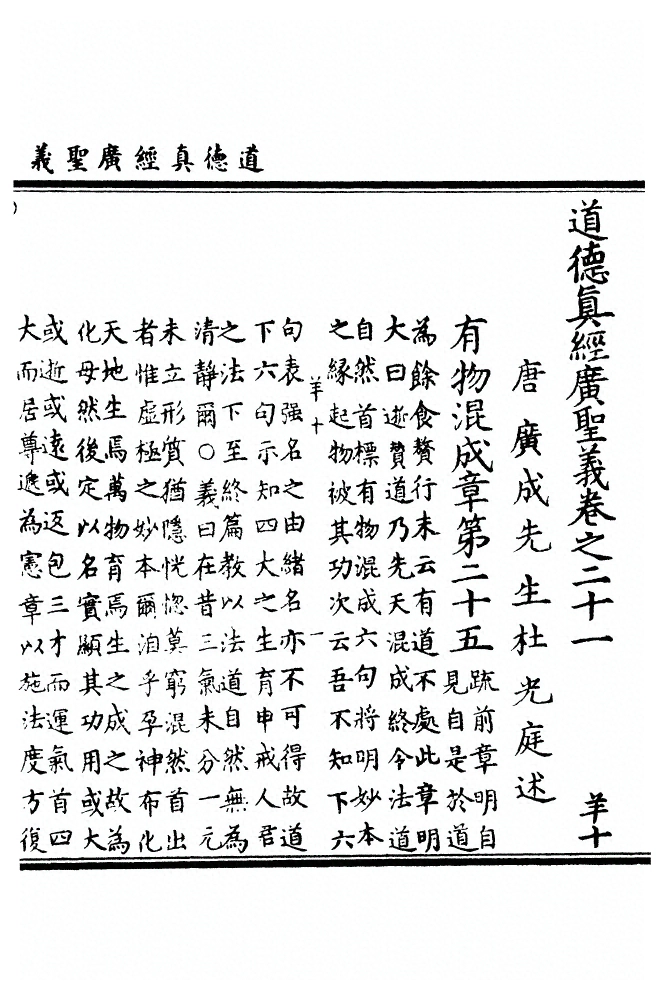 道德真經廣聖義
道德眞經廣聖義卷之二十一 羊十
唐廣成先生杜光庭述
有物混成章第二十五 疏前章明自
見自是於道
為餘食贅行未云有道不處此章明
大曰逝贊道乃先天混成終令法道
自然首標有物混成六句將明妙本
之緣起物被其功次云吾不知下六
羊十 一
句表强名之由緒名亦不可得故道
下六句示知四大之生育申戒人君
之法下至終篇教以法道自然無為
清靜爾○義曰在昔三氣未分一元
未立形質猶隱恍惚莫窮混然首出
者惟虛極之妙本爾洎乎孕神布化
天地生焉萬物育焉生之成之故為
化母然後定以名實顯其功用或大
或逝或遠或返包三才而運氣首四
大而居尊遞為憲章以施法度方復